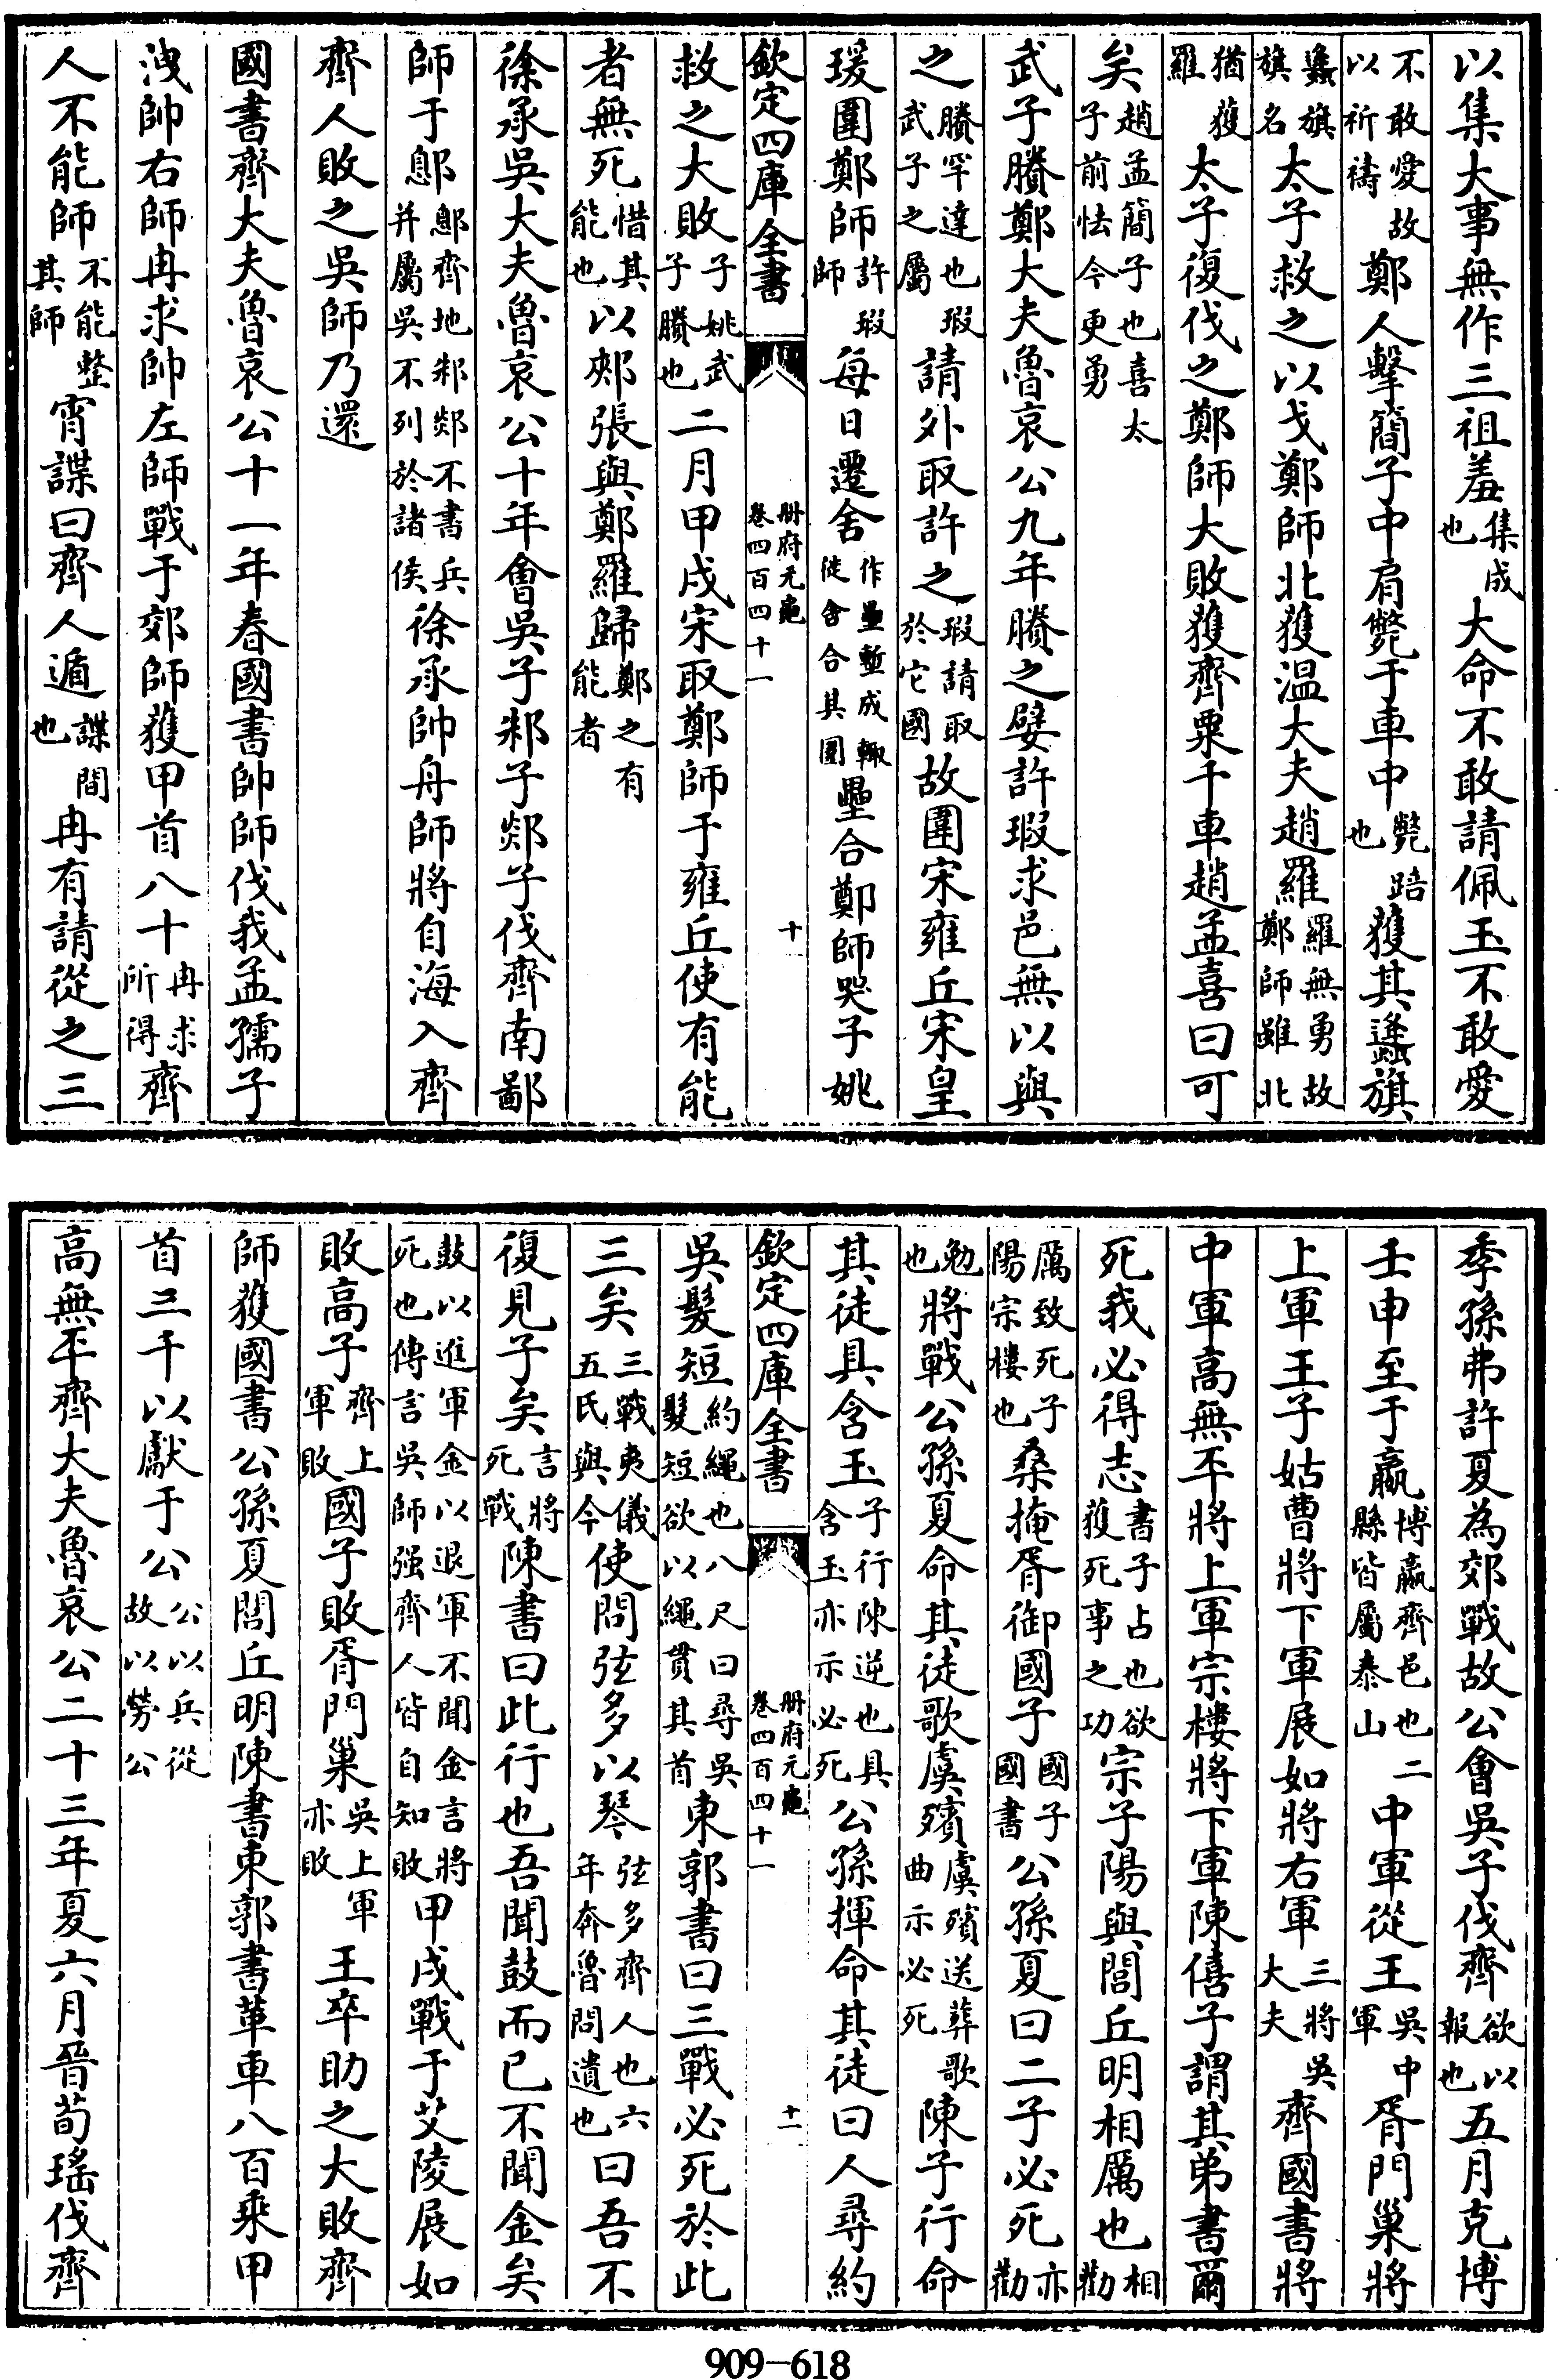 以集大事無作三祖羞集成也大命不敢請佩玉不敢愛
不敢愛故以祈禱鄭人擊簡子中肩斃于車中斃踣也獲其蠭旗
蠭旗旗名太子救之以戈鄭師北獲温大夫趙羅羅無勇故鄭師雖北
猶獲羅太子復伐之鄭師大敗獲齊粟千車趙孟喜曰可
矣趙孟簡子也喜太子前怯今更勇
武子賸鄭大夫魯哀公九年賸之嬖許瑕求邑無以與
之賸罕達也瑕武子之屬請外取許之瑕請取於它國故圍宋雍丘宋皇
瑗圍鄭師許瑕師每日遷舍作壘塹成輙徙舍合其圍壘合鄭師哭子姚
欽定四庫全書
冊府元龜卷四百四十一
十
救之大敗子姚武子賸也二月甲戌宋取鄭師于雍丘使有能
者無死惜其能也以郟張與鄭羅歸鄭之有能者
徐承吳大夫魯哀公十年會吳子邾子郯子伐齊南鄙
師于鄎鄎齊地邾郯不書兵并屬吳不列於諸侯徐承帥舟師將自海入齊
齊人敗之吳師乃還
國書齊大夫魯哀公十一年春國書帥師伐我孟孺子
洩帥右師冉求帥左師戰于郊師獲甲首八十冉求所得齊
人不能師不能整其師宵諜曰齊人遁諜間也冉有請從之三
季孫弗許夏為郊戰故公會吳子伐齊欲以報也五月克博
壬申至于嬴博嬴齊邑也二縣皆屬泰山中軍從王吳中軍胥門巢將
上軍王子姑曹將下軍展如將右軍三將吳大夫齊國書將
中軍高無㔻將上軍宗樓將下軍陳僖子謂其弟書爾
死我必得志書子占也欲獲死事之功宗子陽與閭丘明相厲也相勸
厲致死子陽宗樓也桑掩胥御國子國子國書公孫夏曰二子必死亦勸
勉也將戰公孫夏命其徒歌虞殯虞殯送葬歌曲示必死陳子行命
其徒具含玉子行陳逆也具含玉亦示必死公孫揮命其徒曰人尋約
欽定四庫全書
冊府元龜卷四百四十一
十一
吳髮短約繩也八尺曰尋吳髮短欲以繩貫其首東郭書曰三戰必死於此
三矣三戰夷儀五氏與今使問弦多以琴弦多齊人也六年奔魯問遺也曰吾不
復見子矣言將死戰陳書曰此行也吾聞鼓而已不聞金矣
鼓以進軍金以退軍不聞金言將死也傳言吳師强齊人皆自知敗甲戌戰于艾陵展如
敗高子齊上軍敗國子敗胥門巢吳上軍亦敗王卒助之大敗齊
師獲國書公孫夏閭丘明陳書東郭書革車八百乘甲
首三千以獻于公公以兵從故以勞公
高無㔻齊大夫魯哀公二十三年夏六月晉荀瑤伐齊
909—618